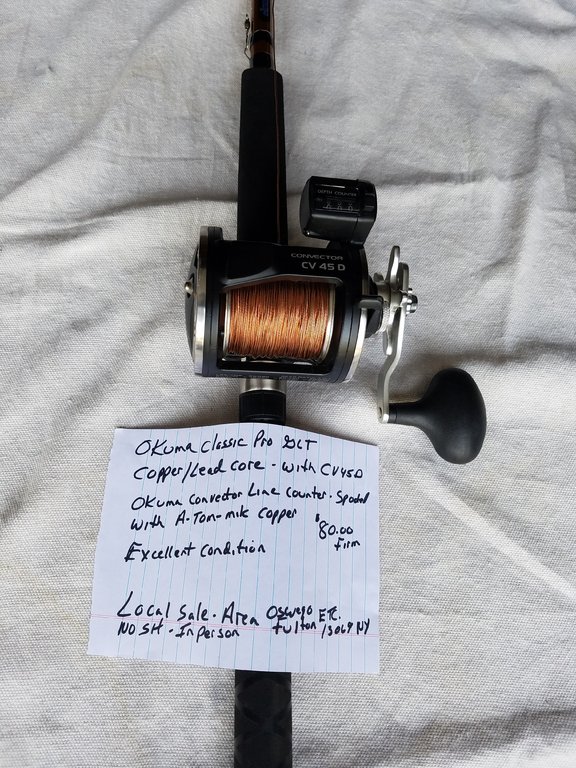 DEPTH COUNTER
CONVECTOR
CV 45 D
OKuma Classic Pro GLT
Copper/Lead Core - with CV45D
OKuma Convector Line Counter. Spooled
with A-Tom-mik Copper
$80.00
Firm
Excellent Condition
Local Sale. Area Oswego ETC.
NO SH - In person Fulton 13069 NY